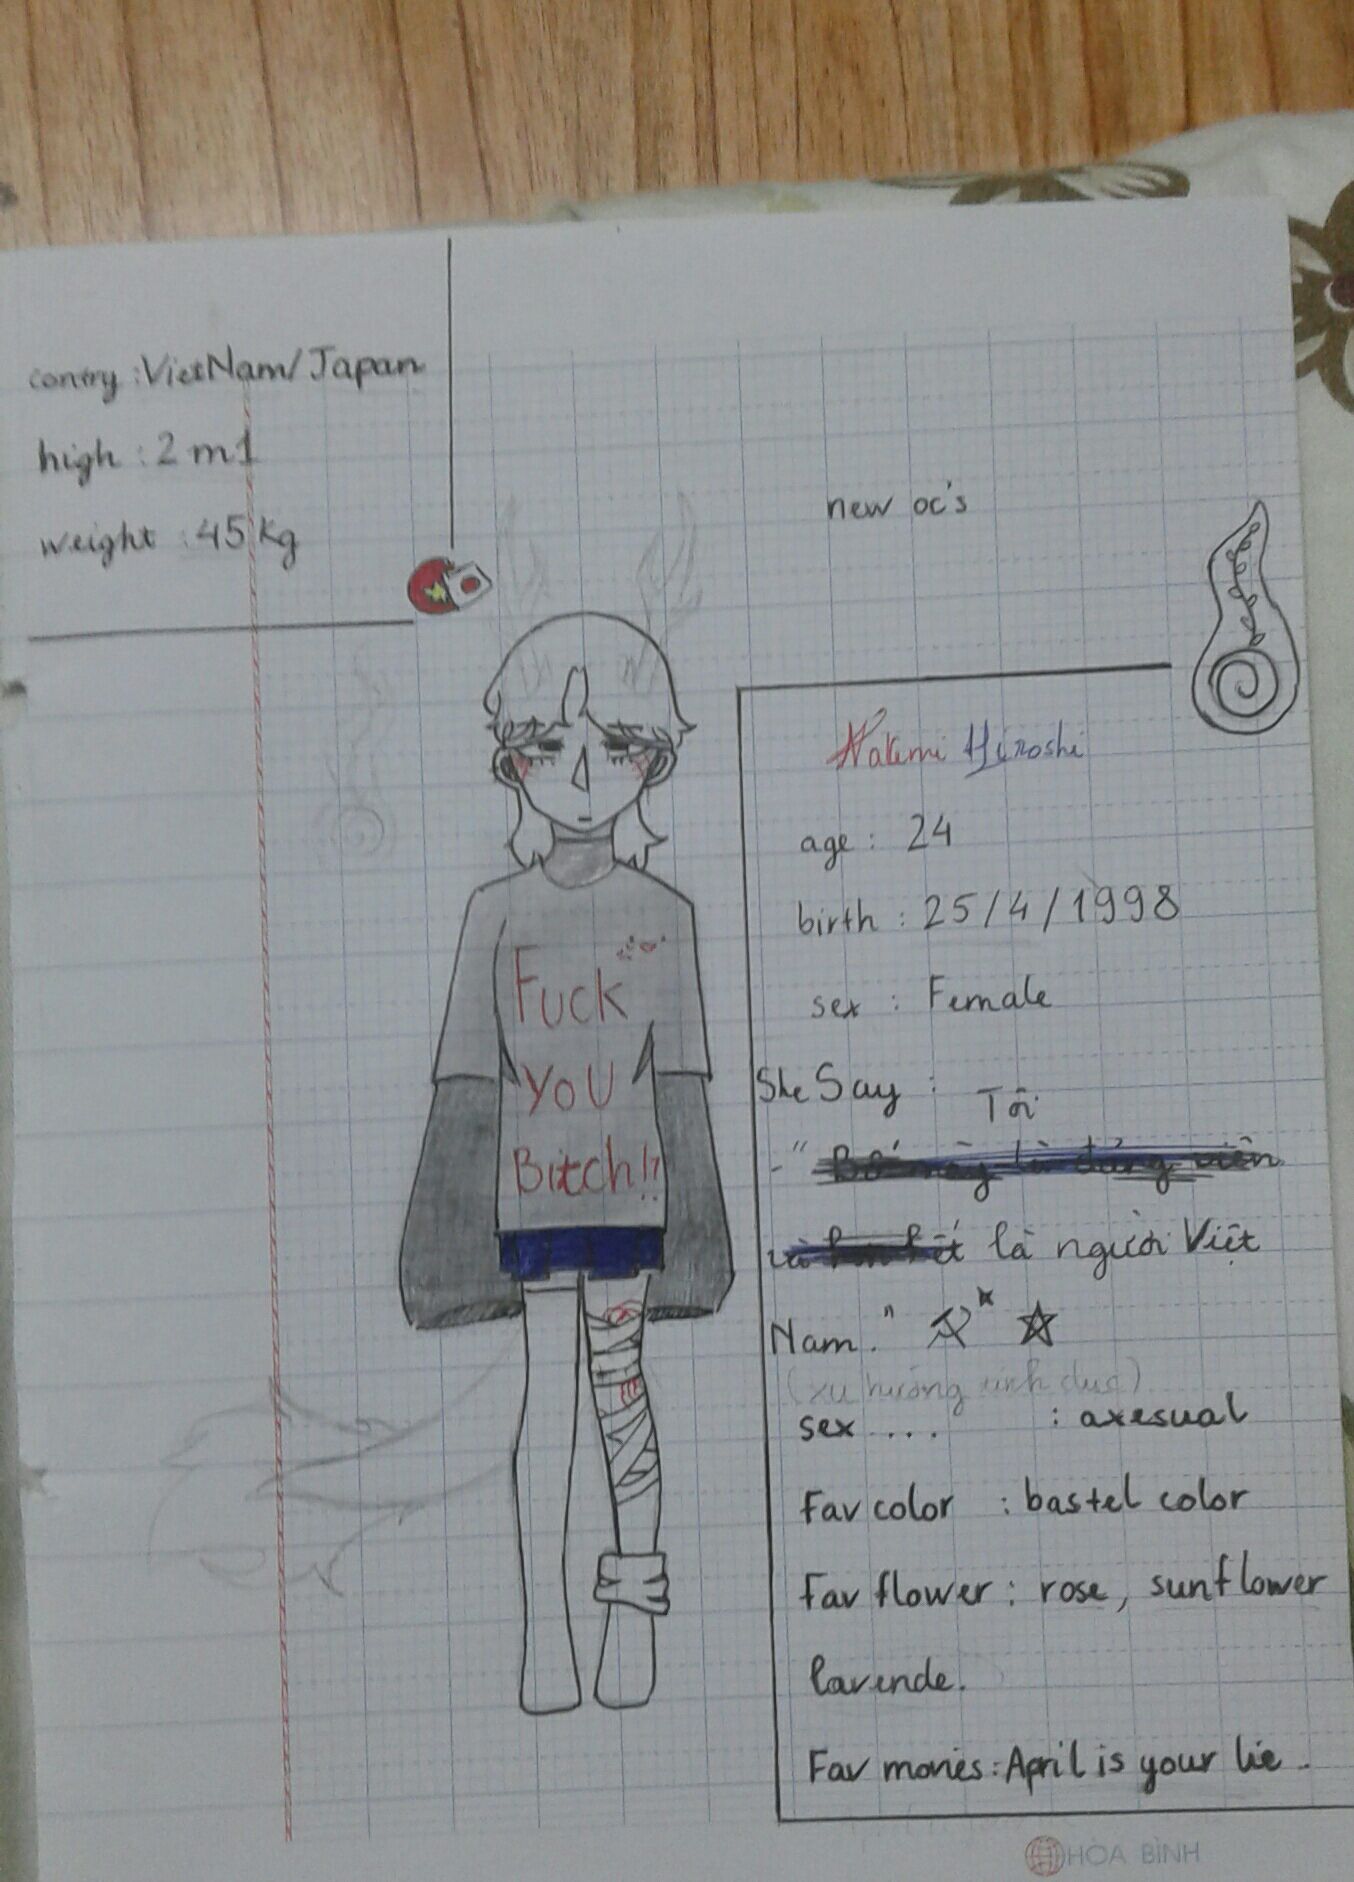 contry : VietNam/Japan
high : 2 m1
weight : 45 kg
new oc's
Nakemi Hiroshi
age : 24
birth : 25/4/1998
sex : Female
She Say :
Tôi
-" Bố mày là đảng viên
và hết là người Việt
Nam."
(xu hướng sinh dục)
sex ... : axesual
Fav color : bastel color
Fav flower : rose, sunflower
lavende.
Fav movies : April is your lie.
Fuck
YoU
Bitch!!
HÒA BÌNH